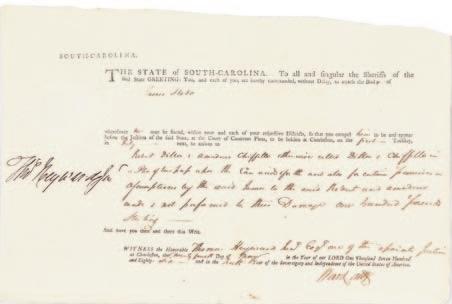 SOUTH-CAROLINA.
THE STATE of SOUTH-CAROLINA. To all and singular the Sheriffs of the
said State GREETING: You, and each of you, are hereby commanded, without Delay, to attach the Body of
James
wheresoever he may be found, within your and each of your respective Districts, so that you compel him to be and appear
before the Justices of the said State, at the Court of Common Pleas, to be holden at Charleston, on the first Tuesday,
in next, to answer to
Robert Dillon & otherwise called Dillon &
in a Plea of trespass upon the Case and also for certain promises
by the said James to the said Robert and
made & not performed to their Damage one hundred Pounds
Sterling
And have you then and there this Writ.
Thos Heyward Junr
WITNESS the Honorable Thomas Heyward Junr Esqr one of the associate Justices
at Charleston, the Day of in the Year of our LORD One Thousand Seven Hundred
and Eighty- and in the Year of the Sovereignty and Independence of the United States of America.